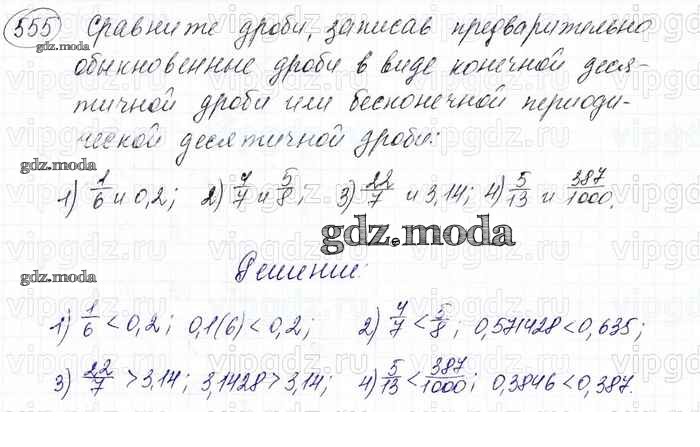 555 Сравните дроби, записав предварительно
обыкновенные дроби в виде конечной деся-
тичной дроби или бесконечной периоди-
ческой десятичной дроби:
1) 1/6 и 0,2; 2) 4/7 и 5/8; 3) 22/7 и 3,14; 4) 5/13 и 387/1000.
Решение:
1) 1/6 < 0,2; 0,1(6) < 0,2; 2) 4/7 < 5/8; 0,571428 < 0,635;
3) 22/7 > 3,14; 3,1428 > 3,14; 4) 5/13 < 387/1000; 0,3846 < 0,387.
gdz.moda
gdz.moda
gdz.moda
gdz.moda
vipgdz.ru